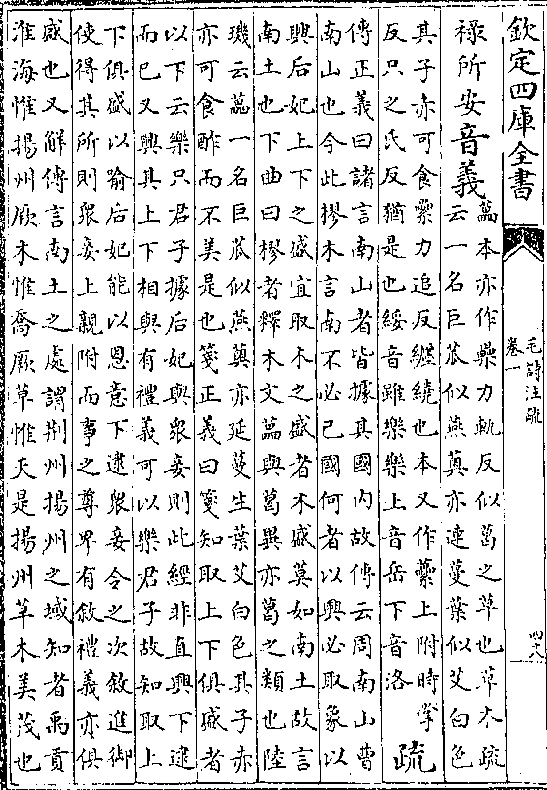 欽定四庫全書
毛詩注疏
卷一
四八
祿所安音義
藟本亦作虆力軌反似葛之草也草木疏
云一名巨苽似燕薁亦連蔓葉似艾白色
其子亦可食纍力追反纒繞也本又作虆上附時掌
反只之氏反猶是也綏音雖樂樂上音岳下音洛
疏
傳正義曰諸言南山者皆據其國内故傳云周南山曹
南山也今此樛木言南不必己國何者以興必取象以
興后妃上下之盛宜取木之盛者木盛莫如南土故言
南土也下曲曰樛者釋木文藟與葛異亦葛之類也陸
璣云藟一名巨苽似燕薁亦延蔓生葉艾白色其子赤
亦可食酢而不美是也箋正義曰箋知取上下俱盛者
以下云樂只君子據后妃與衆妾則此經非直興下逮
而已又興其上下相與有禮義可以樂君子故知取上
下俱盛以喻后妃能以恩意下逮衆妾令之次敘進御
使得其所則衆妾上親附而事之尊卑有敘禮義亦俱
盛也又解傳言南土之處謂荆州揚州之域知者禹貢
淮海惟揚州厥木惟喬厥草惟夭是揚州草木美茂也